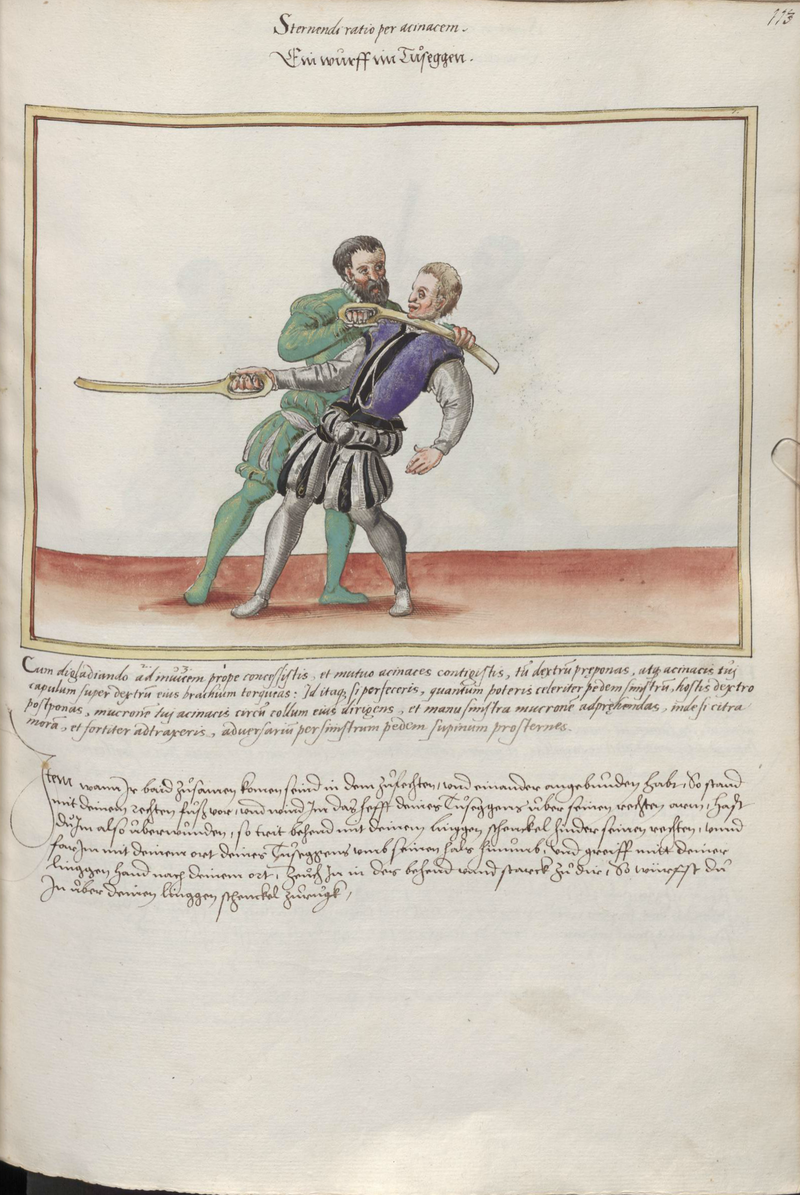 113
Sternendi ratio per acinacem.
Ein wurff im Tůseggen.
Cum digladiando ad invicem prope concessistis, et mutuo acinaces contigistis, tu dextrū preponas, atq acinacis tui
capulum super dextrū eius brachium torqueas: Id itaq si perfeceris, quantum poteris celeriter pedem sinistrū, hostis dextro
postponas, mucronē tui acinacis circū collum eius dirigens, et manu sinistra mucronē adprehendas, inde si citra
morā, et fortiter adtraxeris, adversariū per sinistrum pedem supinum prosternes.
Item wann Ir baid zůsamen komen seind in dem zůfechten, vnd einander angebunden habt, So stand
mit deinem rechten fůß vor, vnd wind Im das hefft deines Tůseggens über seinen rechten arm, hast
du Im also überwunden, so trit behend mit deinem linggen schenckel hinder seinen rechten, vnnd
far Im mit deinem ort deines Tůseggens vmb seinen hals hinumb, vnd greiff mit deiner
linggen hand nach deinem ort, Zeuch In in des behend vnnd starck zů dir, So würfst du
In über deinen linggen schenckel zůrugk,